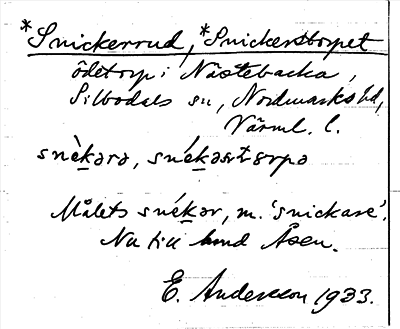 *Snickerrud, *Snickerstorpet
ödetorp i Nästebacka,
Silbodals sn, Nordmarks hd,
Värml. l.
snèkərə, snékəstɔrpə
Målets snékər, m. 'snickare'.
Nu till hmd Åsen.
E. Andersson 1933.